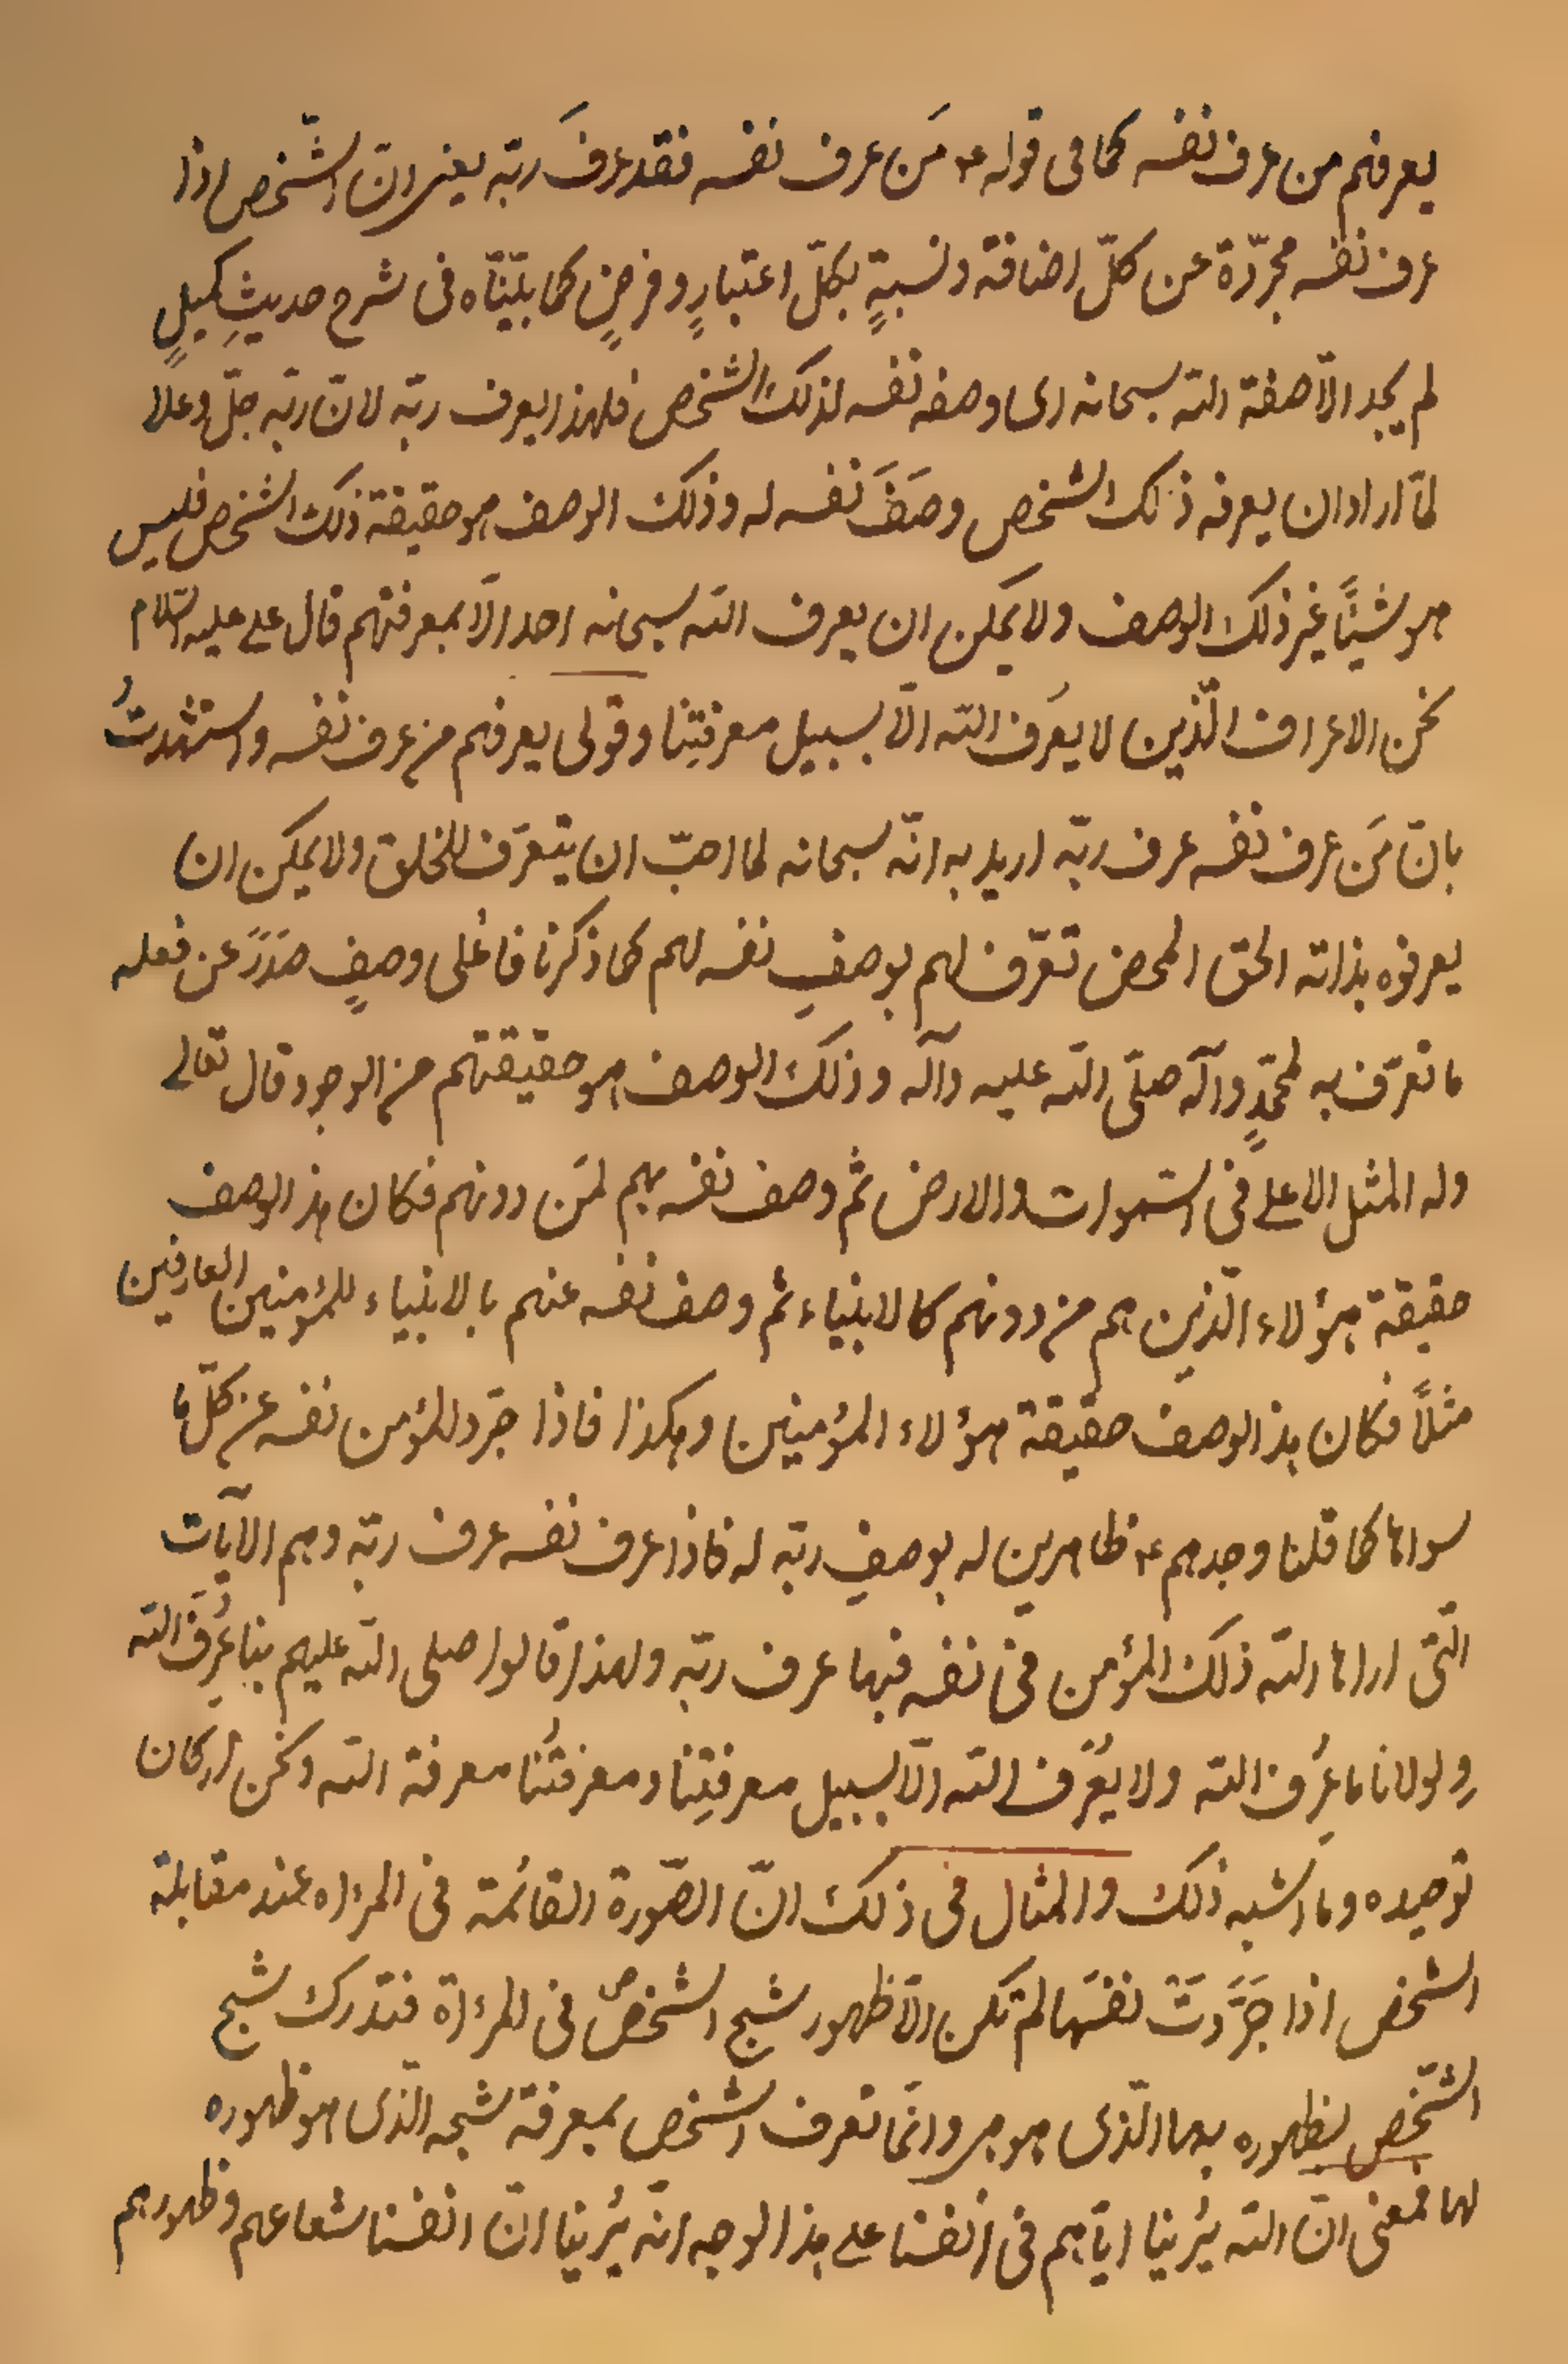 يعرفهم من عرف نفسه كما فى قوله ع مَن عرف نفسه فقد عرفَ ربّه يعنى انّ الشّخص اذا
عرف نفسه مجرّدة عن كلّ اضافة ونسبةٍ بكلّ اعتبارٍ وفرضٍ كما بيّنّاه فى شرح حديثِ كميلٍ
لم يجد الّا صفة الله سبحانه اى وصفه نفسه لذلك الشخص فلهذا يعرف ربّه لانّ ربّه جلّ وعلا
لمّا اراد ان يعرفه ذلك الشخص وصَفَ نفسه له وذلك الوصف هو حقيقة ذلك الشخص فليس
هو شيئًا غير ذلك الوصف ولا يمكن ان يعرف الله سبحانه احد الّا بمعرفتهم قال على عليه السّلام
نحن الاعراف الّذين لا يعُرَف الله الّا بسبيل معرفتِنا وقولى يعرفهم من عرف نفسه واستشهدتُ
بانّ مَن عرف نفسه عرف ربّه اريد به انّه سبحانه لما احبّ ان يتعرّف للخلق ولا يمكن ان
يعرفوه بذاته الحق المحض تعرّف لهم بوصفِ نفسه لهم كما ذكرنا فاعْلى وصفٍ صَدَرَ عن فعله
ما تعرّف به لمحمّدٍ وآله صلّى الله عليه وآله وذلك الوصف هو حقيقتهم من الوجود قال تعالى
وله المثل الاعلى فى السّموات والارض ثم وصف نفسه بهم لمَن دونهم فكان هذا الوصف
حقيقة هؤلاء الّذين هم من دونهم كالانبياء ثم وصف نفسه عنهم بالانبياء للمؤمنين العارفين
مثلاً فكان هذا الوصف حقيقة هؤلاء المؤمنين وهكذا فاذا جرّد المؤمن نفسه عن كلّ ما
سواها كما قلنا وجدهم ع ظاهرين له بوصفِ ربّه له فاذا عرف نفسه عرف ربّه وهم الآيات
الّتى اراها الله ذلك المؤمن فى نفسه فبها عرف ربّه ولهذا قالوا صلى الله عليهم بنا عُرِفَ الله
ولولانا ما عُرِف الله ولا يُعْرَف الله الّا بسبيل معرفتِنا ومعرفتُنا معرفة الله ونحن اركان
توحيده وما اشبه ذلك والمثال فى ذلك انّ الصّورة القائمة فى المرءاه عند مقابلة
الشخص اذا جَرَّدَتْ نفسَها لم تكن الّا ظهور شبح الشخص فى المرءاة فتدرك شبح
الشّخص بظهوره بها الّذى هو هى وانّما تعرف الشخص بمعرفة شبحه الّذى هو ظهوره
لها فمعنى انّ الله يُرينا ايّاهم فى انفسنا على هذا الوجه انّه يُرينا انّ انفسنا شعاعهم وظهورهم